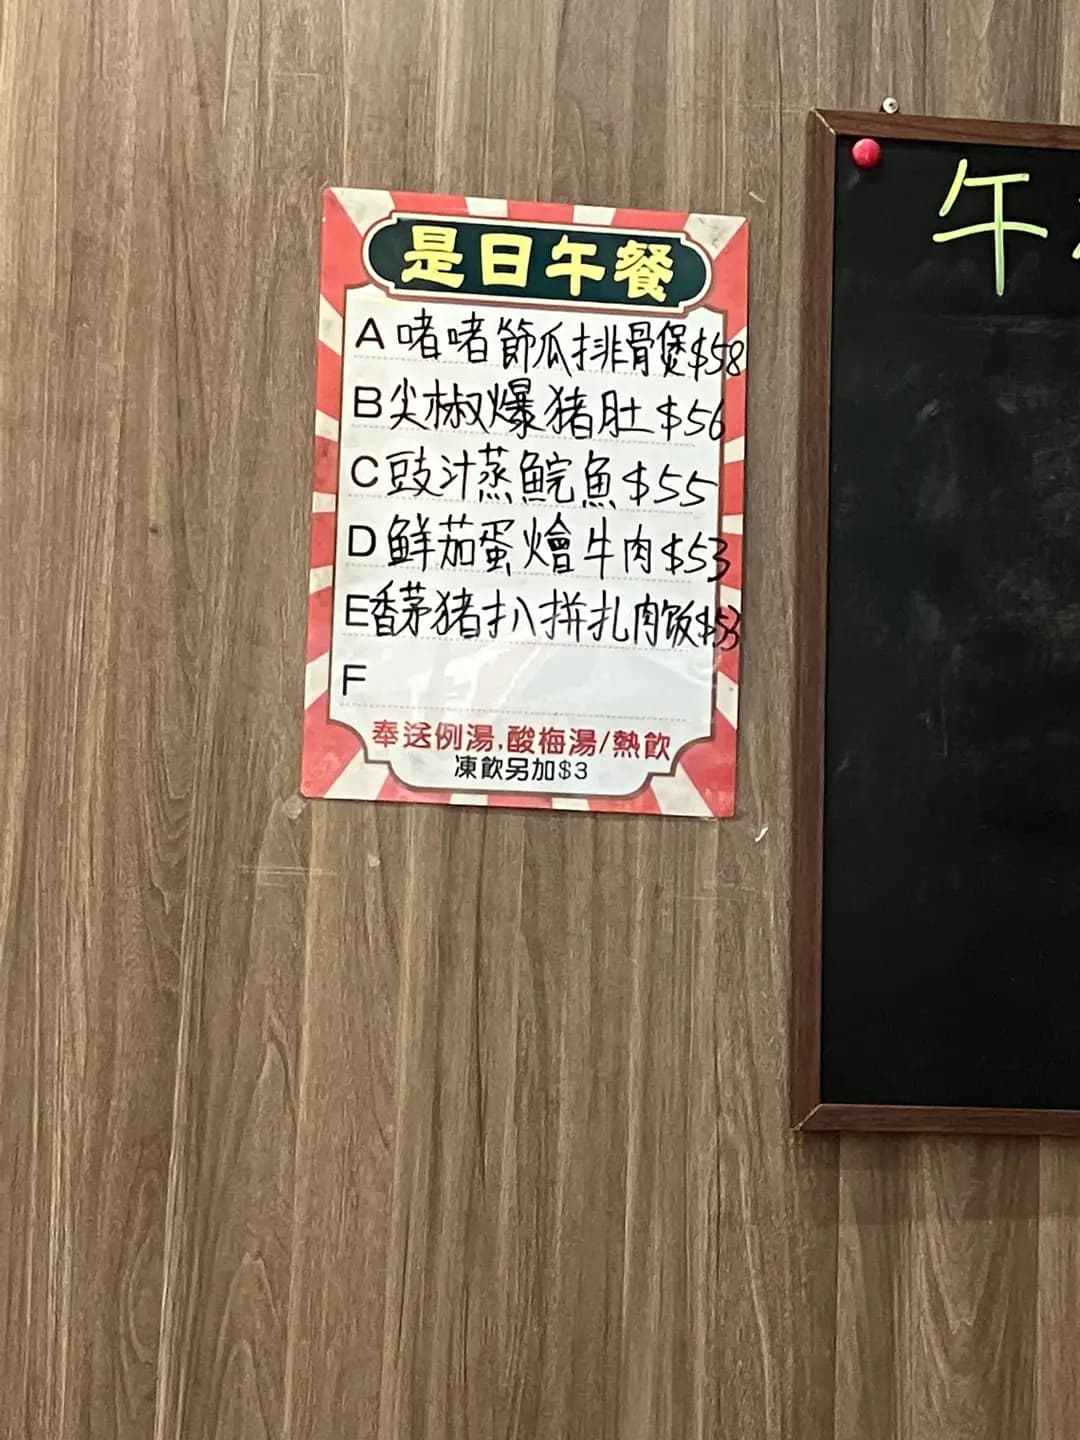 是日午餐
A 啫啫節瓜排骨煲$58
B 尖椒爆猪肚$56
C 豉汁蒸鯇魚$55
D 鲜茄蛋燴牛肉$53
E 香茅猪扒拼扎肉饭$53
F
奉送例湯,酸梅湯/熱飲
凍飲另加$3
午